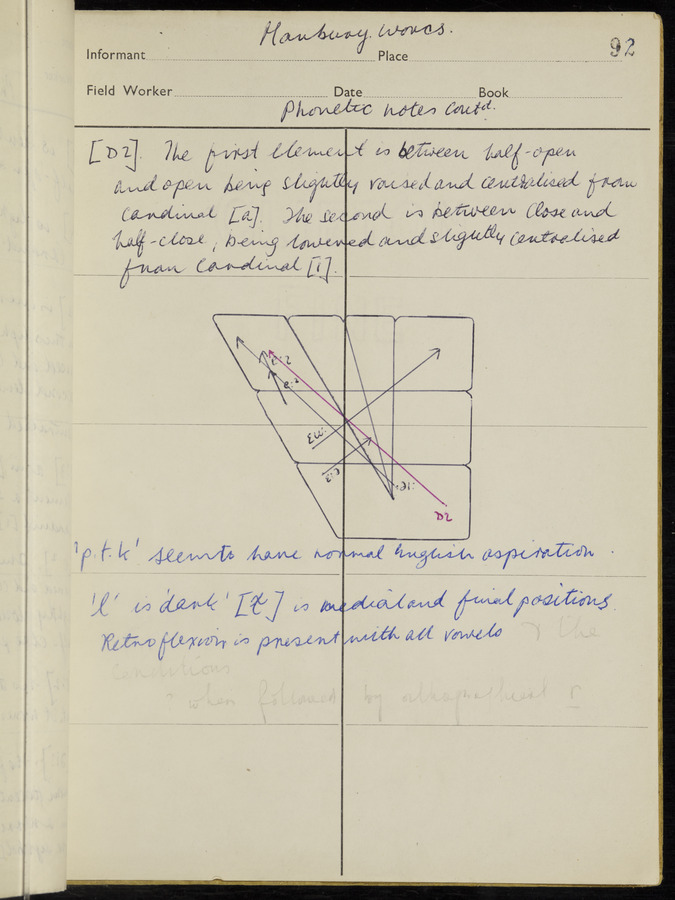 Hanbury. Worcs.
92
Informant Place
Field Worker Date Book
Phonetic notes contd.
[ɒɪ]. The first element is between half-open
and open being slightly raised and centralised from
cardinal [ɑ]. The second is between close and
half-close, being lowered and slightly centralised
from cardinal [i].
ɒɪ
'p.t.k' seem to have normal English aspiration.
'l' is 'dark' [ɫ] is medial and final positions.
Retroflexion is present with all vowels & the
conditions
? when followed by orthographical r